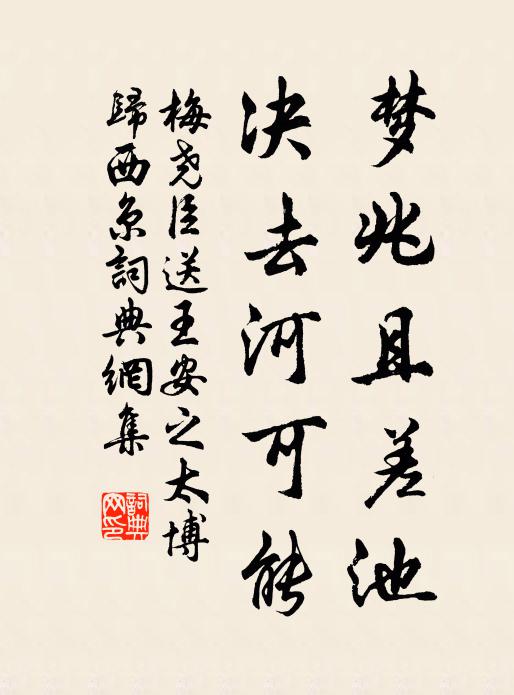 梦兆且差池
决去河可能
梅尧臣送王安之太博
歸西京詞典網集
詞典網印